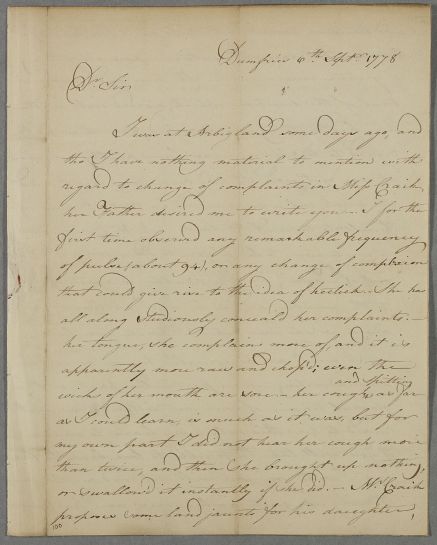 Dumfries 6th Sept. 1778
Dr Sir
I was at Arbigland some days ago, and
tho I have nothing material to mention with
regard to change of complaints in Miss Craik
her Father desired me to write you — I for the
first time observed any remarkable frequency
of pulse (about 94), or any change of complexion
that could give rise to the idea of hectick. She has
all along studiously conceald her complaints. —
her tongue, she complains more of, and it is
apparently more raw and chop'd; even the
wicks of her mouth are sore — her cough and spitting as far
as I could learn, is much as it was, but for
my own part I did not hear her cough more
than twice, and then she brought up nothing,
or swallow'd it instantly if she did. — Mr Craik
proposes some land jaunts for his daughter,
100